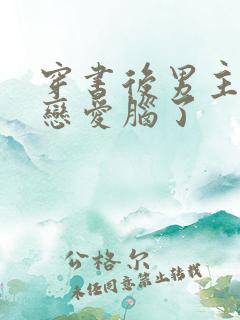 穿書後男主
戀愛腦了
公格尔
未经同意禁止转载